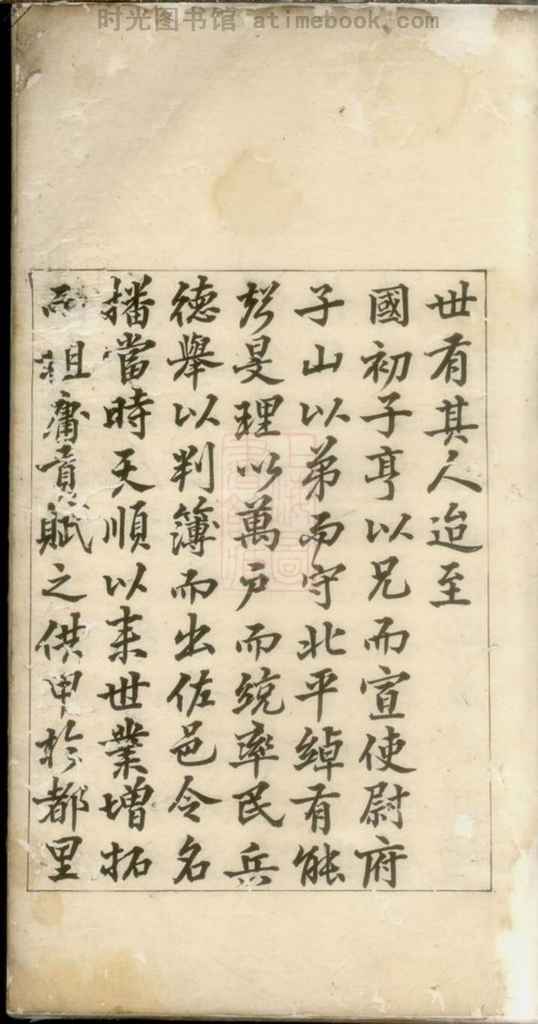 时光图书馆 atimebook.com
世有其人迨至
國初子亨以兄而宣使尉府
子山以弟而守北平綽有能
聲旻理以萬戶而統率民兵
德舉以判簿而出佐邑令名
播當時天順以来世業增拓
而租庸貢賦之供甲於都里